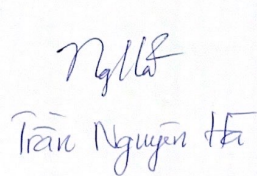 Trần Nguyên Hà